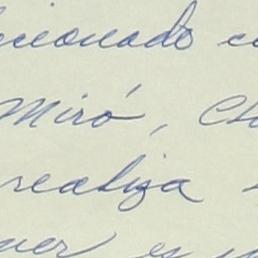 cionado
Miró, Ch
realiza
es